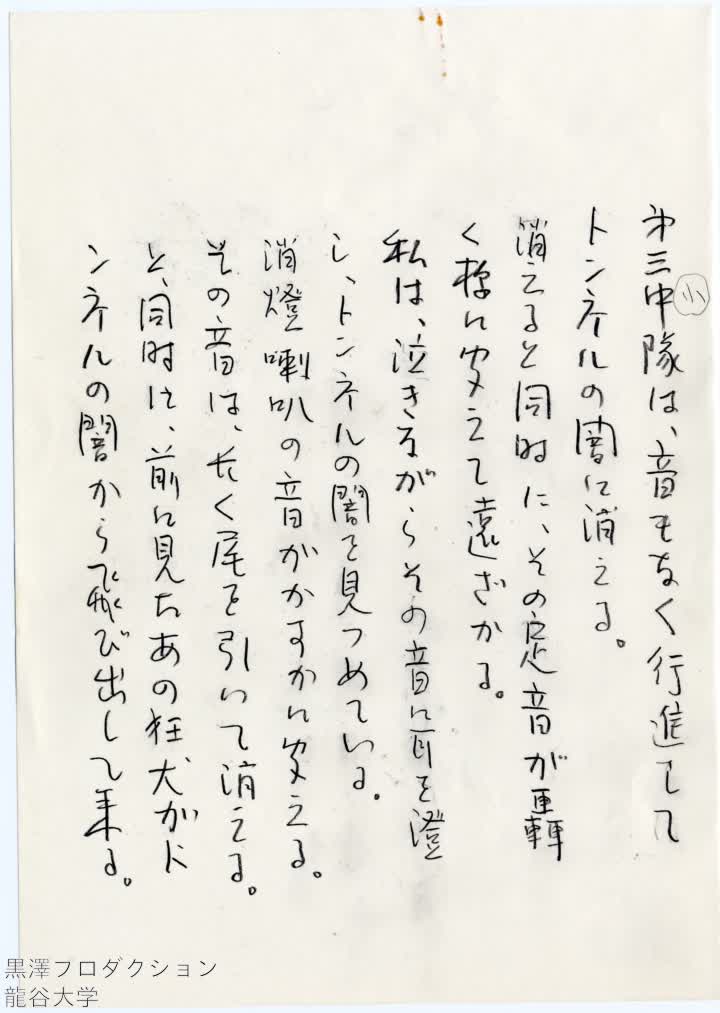 第三中隊は、音もなく行進して
小
トンネルの闇に消える。
消えると同時に、その足音が轟
く様に聞えて遠ざかる。
私は、泣きながらその音に耳を澄
し、トンネルの闇を見つめている。
消燈喇叭の音がかすかに聞える。
その音は、長く尾を引いて消える。
と、同時に、前に見たあの狂犬がト
ンネルの闇から飛び出して来る。
黒澤プロダクション
龍谷大学